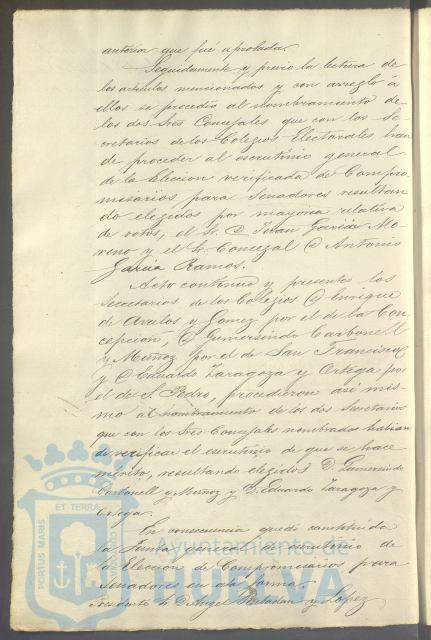 anterior que fué aprobada.
Seguidamente y previa la lectura de
los artículos mencionados y con arreglo á
ellos se procedió al nombramiento de
los dos Sres Concejales que con los Se-
cretarios de los Colegios Electorales han
de proceder al escrutinio general
de la Eleccion verificada de Compro-
misarios para Senadores resultan
do elegidos por mayoria relativa
de votos, el Sr. D. Juan Garcia Mo-
reno y el Sr. Concejal D Antonio
Garcia Ramos.
Acto continuo y presentes los
Secretarios de los Colegios D Enrique
de Avalos y Gomez por el de la Con-
cepcion, D Gumersindo Carbonell
y Muñoz por el de San Francisco
y D Eduardo Zaragoza y Ortega por
el de S. Pedro, procedieron asi mis-
mo al nombramiento de los dos Secretarios
que con los Sres Concejales nombrados habian
de verificar el escrutinio de que se hace
mérito, resultando elegidos D. Gumersindo
Carbonell y Muñoz y D. Eduardo Zaragoza y
Ortega.
En consecuencia quedó constituida
la Junta general de escrutinio de
la Eleccion de Compromisarios para
Senadores en esta forma.
Presidente Sr. D Angel y Lopez
PORTUS MARIS ET TERRAE CUSTODIA
Ayuntamiento de
HUELVA